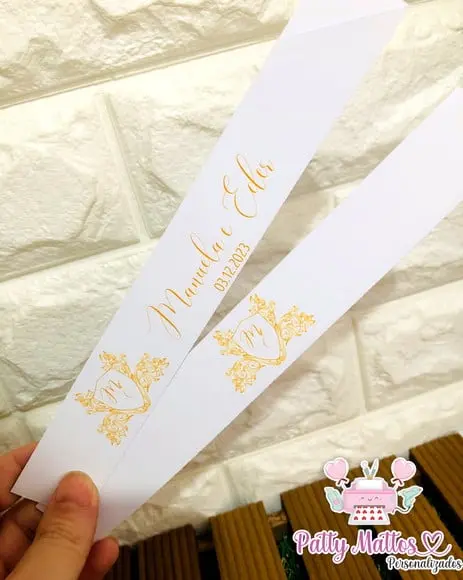 Manuela e Eder
03.12.2023
M
M
Patty Mattos
Personalizados